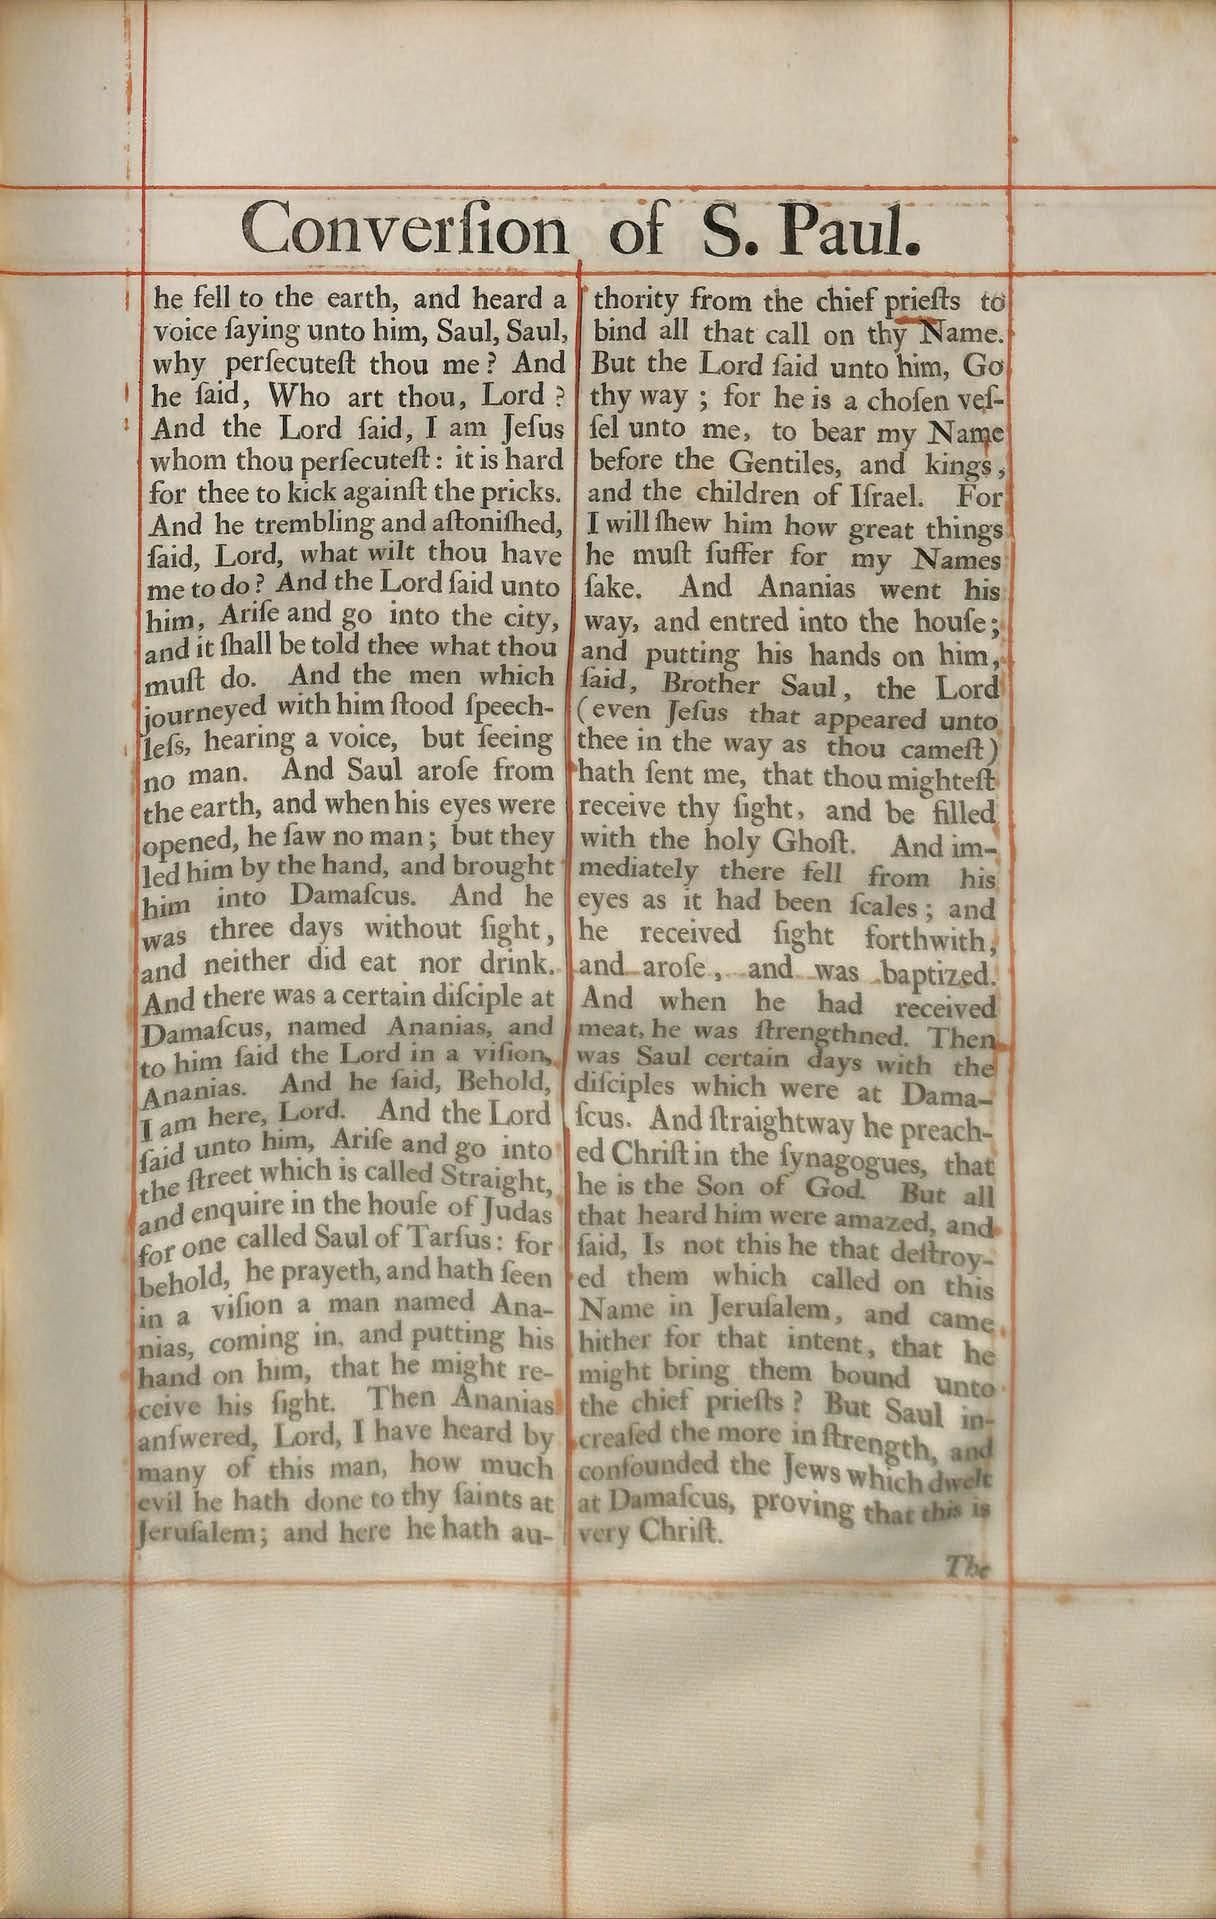 Converſion of S. Paul.
he fell to the earth, and heard a
voice ſaying unto him, Saul, Saul,
why perſecuteſt thou me? And
he ſaid, Who art thou, Lord?
And the Lord ſaid, I am Jeſus
whom thou perſecuteſt: it is hard
for thee to kick againſt the pricks.
And he trembling and aſtoniſhed,
ſaid, Lord, what wilt thou have
me to do? And the Lord ſaid unto
him, Ariſe and go into the city,
and it ſhall be told thee what thou
muſt do. And the men which
journeyed with him ſtood ſpeech-
leſs, hearing a voice, but ſeeing
no man. And Saul aroſe from
the earth, and when his eyes were
opened, he ſaw no man; but they
led him by the hand, and brought
him into Damaſcus. And he
was three days without ſight,
and neither did eat nor drink.
And there was a certain diſciple at
Damaſcus, named Ananias, and
to him ſaid the Lord in a viſion,
Ananias. And he ſaid, Behold,
I am here, Lord. And the Lord
ſaid unto him, Ariſe and go into
the ſtreet which is called Straight,
and enquire in the houſe of Judas
for one called Saul of Tarſus: for
behold, he prayeth, and hath ſeen
in a viſion a man named Ana-
nias, coming in, and putting his
hand on him, that he might re-
ceive his ſight. Then Ananias
anſwered, Lord, I have heard by
many of this man, how much
evil he hath done to thy ſaints at
Jeruſalem; and here he hath au-
thority from the chief prieſts to
bind all that call on thy Name.
But the Lord ſaid unto him, Go
thy way; for he is a choſen veſ-
ſel unto me, to bear my Name
before the Gentiles, and kings,
and the children of Iſrael. For
I will ſhew him how great things
he muſt ſuffer for my Names
ſake. And Ananias went his
way, and entred into the houſe;
and putting his hands on him,
ſaid, Brother Saul, the Lord
(even Jeſus that appeared unto
thee in the way as thou cameſt)
hath ſent me, that thou mighteſt
receive thy ſight, and be filled
with the holy Ghoſt. And im-
mediately there fell from his
eyes as it had been ſcales; and
he received ſight forthwith,
and aroſe, and was baptized.
And when he had received
meat, he was ſtrengthned. Then
was Saul certain days with the
diſciples which were at Dama-
ſcus. And ſtraightway he preach-
ed Chriſt in the ſynagogues, that
he is the Son of God. But all
that heard him were amazed, and
ſaid, Is not this he that deſtroy-
ed them which called on this
Name in Jeruſalem, and came
hither for that intent, that he
might bring them bound unto
the chief prieſts? But Saul in-
creaſed the more in ſtrength, and
confounded the Jews which dwelt
at Damaſcus, proving that this is
very Chriſt.
The